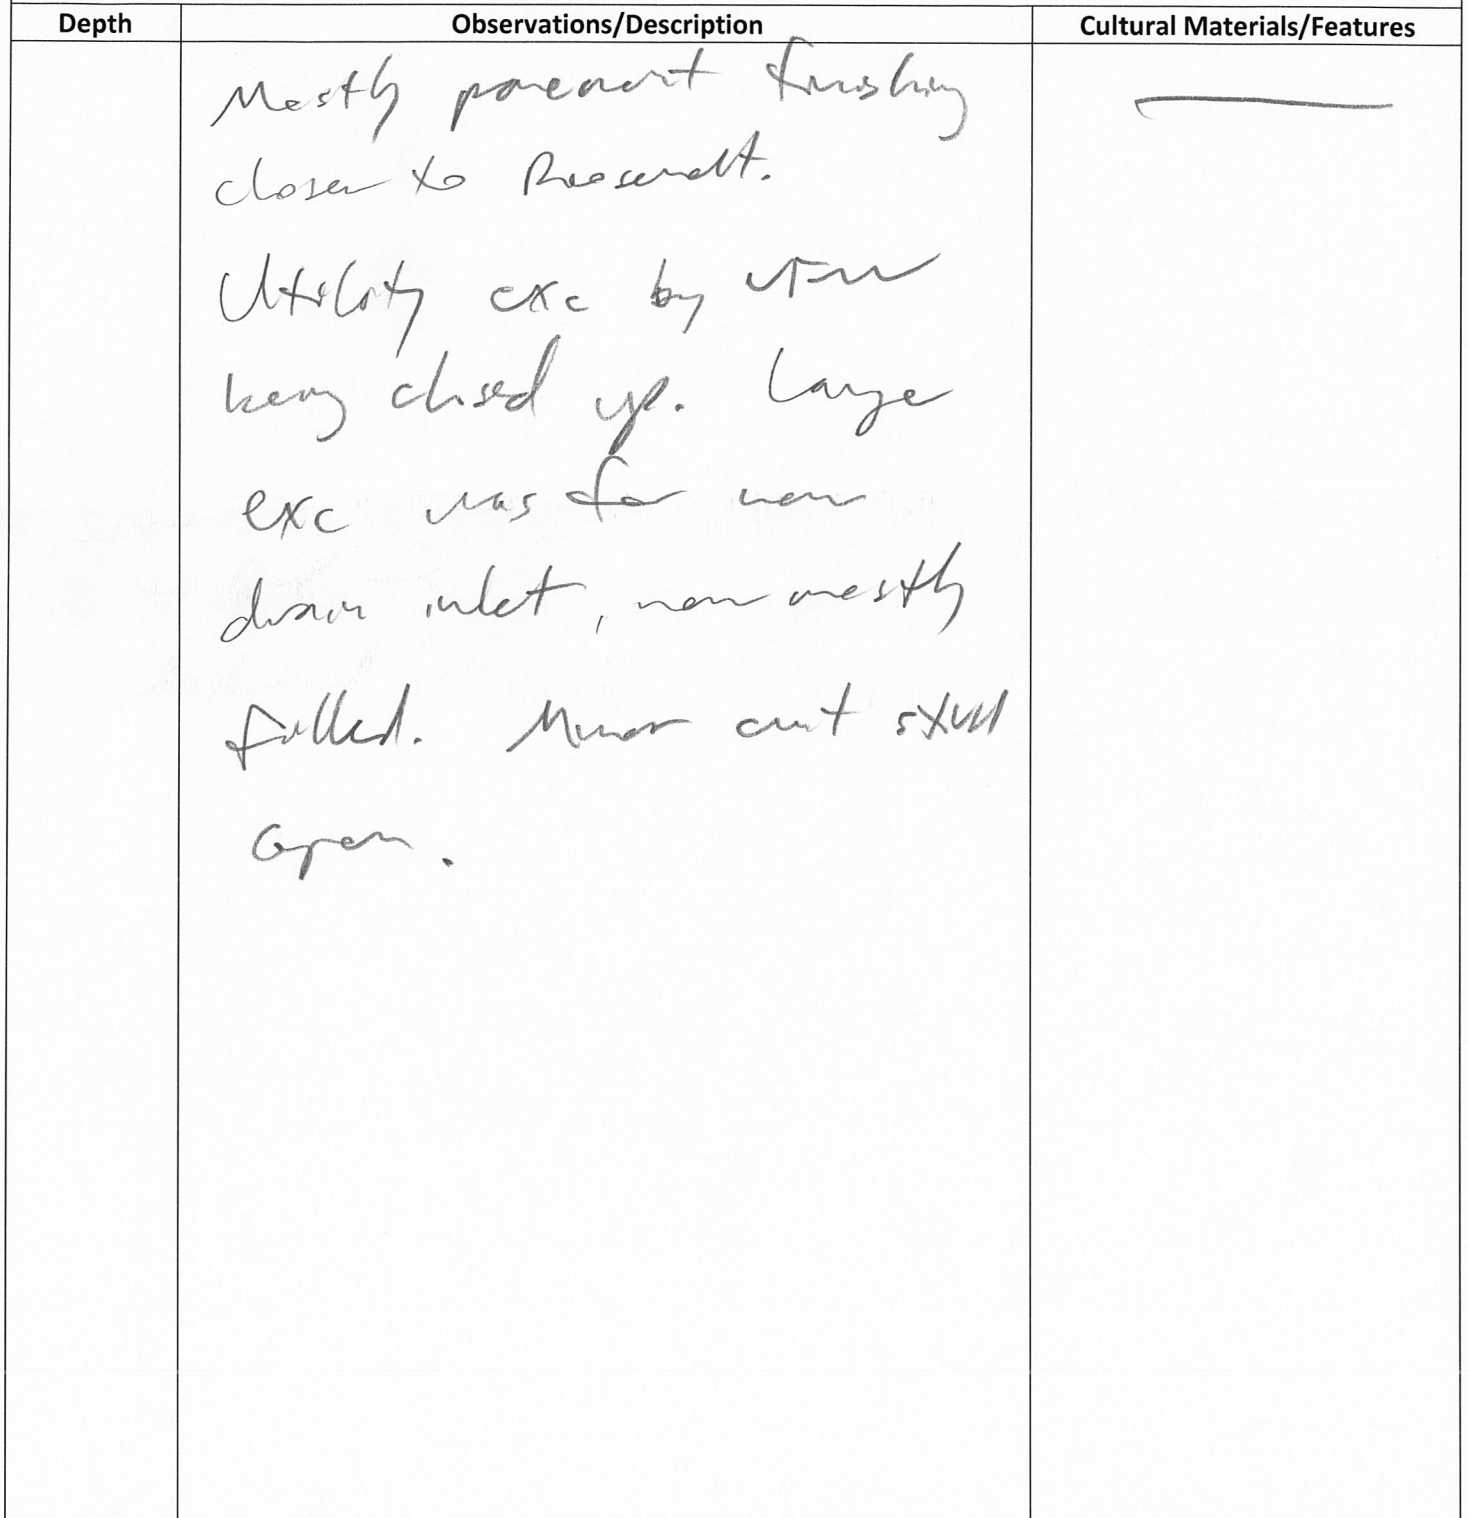 Depth Observations/Description Cultural Materials/Features
Mostly pavement finishing
closer to Roosevelt.
Utility exc by
being closed up. Large
exc was for new
drain inlet, now mostly
filled. Minor amt still
open.